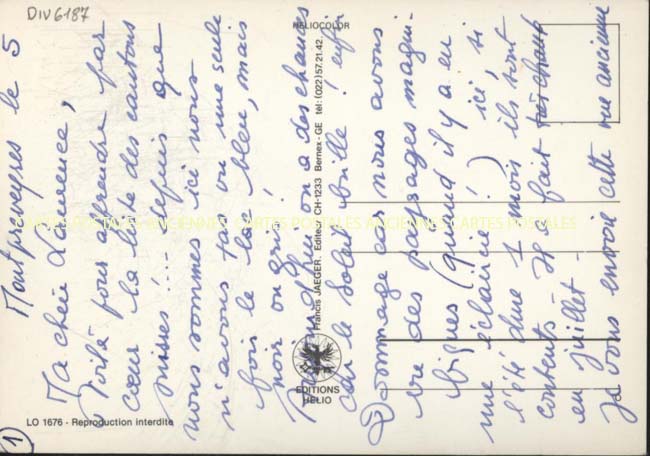 DIV6187
Montpreveyres le 5
Ma chère Laurence,
Voilà pour apprendre par
cœur la liste des cantons
suisses!... depuis que
nous sommes ici nous
n'avons vu une seule
fois le lac bleu, mais
noir ou gris!
on a des chances
car le soleil brille! enfin
Dommage car nous avons
des paysages magni-
fiques (quand il y a eu
une éclaircie!) ici, si
l'été dure 1 mois ils sont
contents - Il a fait très chaud
en juillet -
Je vous envoie cette vue ancienne
HELIOCOLOR
Francis JAEGER, Editeur CH-1233 Bernex-GE tél: (022) 57.21.42.
EDITIONS
HELIO
LO 1676 - Reproduction interdite
1
CARTES POSTALES ANCIENNES CARTES POSTALES ANCIENNES CARTES POSTALES